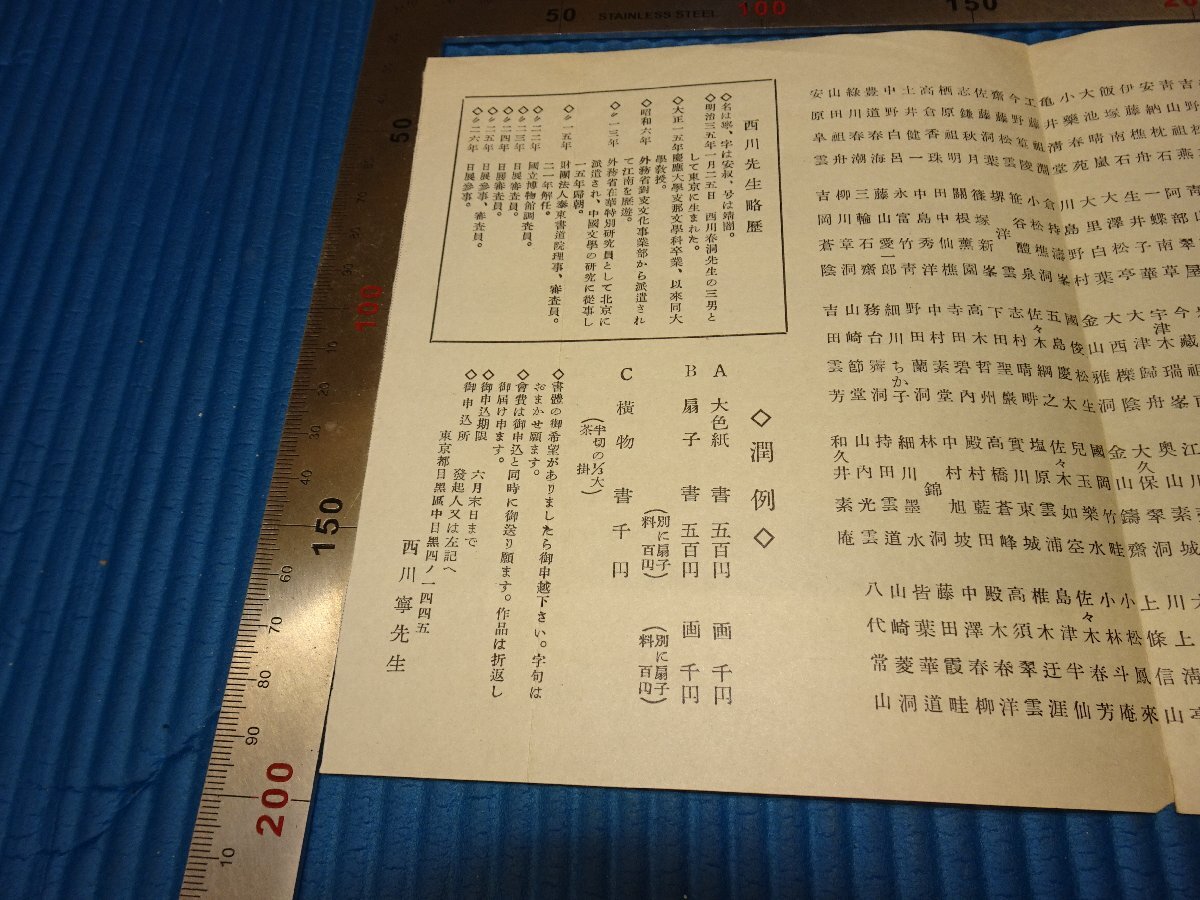 小藥春苑
亀井清堂
工藤祖淵
今野草陵
齋藤松雲
佐藤洞葉
志鎌秋月
栖原祖明
高倉香珠
土井健一
中野白呂
豊道春海
綠川祖潮
山田春舟
安原皐雲
大澤松亭
大里白葉
倉持濤峯
小松樵洞
笹谷醴泉
篠塚新峯
關根薫園
田中仙樵
中島秀洋
永富竹青
藤山愛一郎
三輪石齋
柳川章洞
吉岡蒼陰
宇津木瑞峯
大津歸舟
大西樑陰
金山雅洞
國俊松生
五島慶太
佐々木綱之
志村晴畊
下田聖巖
高木哲州
寺田碧内
中村素堂
野田蘭洞
細川ちか子
務台霽洞
山崎節堂
吉田雲芳
大久保翠洞
金山鑄齋
國岡竹畦
兒玉樂水
佐々木如空
塩原雲浦
實川東城
高橋蒼峰
殿村藍田
中村旭坡
林錦洞
細川墨水
持田雲道
和久井素庵
上條信山
小松鳳來
小林斗庵
佐々木春芳
島津半仙
椎木迂涯
高須翠雲
殿木春洋
中澤春柳
藤田霞畦
皆葉華道
山崎菱洞
八代常山
西川先生略歷
◇名は寧、字は安叔、号は靖闇。
◇明治三五年一月二五日　西川春洞先生の三男と
して東京に生まれた。
◇大正一五年慶應大學支那文學科卒業、以來同大
學敎授。
◇昭和六年　外務省對支文化事業部から派遣され
て江南を歷遊。
◇〃一三年　外務省在華特別研究員として北京に
派遣され、中國文學の研究に從事し
一五年歸朝。
◇〃一五年　財團法人泰東書道院理事、審査員。
二一年解任。
◇〃二二年　國立博物館調査員。
◇〃二三年　日展審査員。
◇〃二四年　日展審査員。
◇〃二五年　日展參事、審査員。
◇〃二六年　日展參事。
◇潤例◇
A　大色紙　書　五百円　画　千円
B　扇子　書　五百円（別に扇子料　百円）　画　千円（別に扇子料　百円）
C　橫物　書　千円
（半切の½大 茶掛）
◇書體の御希望がありましたら御申越下さい。字句は
おまかせ願ます。
◇會費は御申込と同時に御送り願ます。作品は折返し
御届け申ます。
◇御申込期限　六月末日まで
◇御申込所　發起人又は左記へ
東京都目黑區中目黑四ノ一四四五
西川寧先生
STAINLESS STEEL
50
100
150
50
100
150
60
70
80
90
200
10